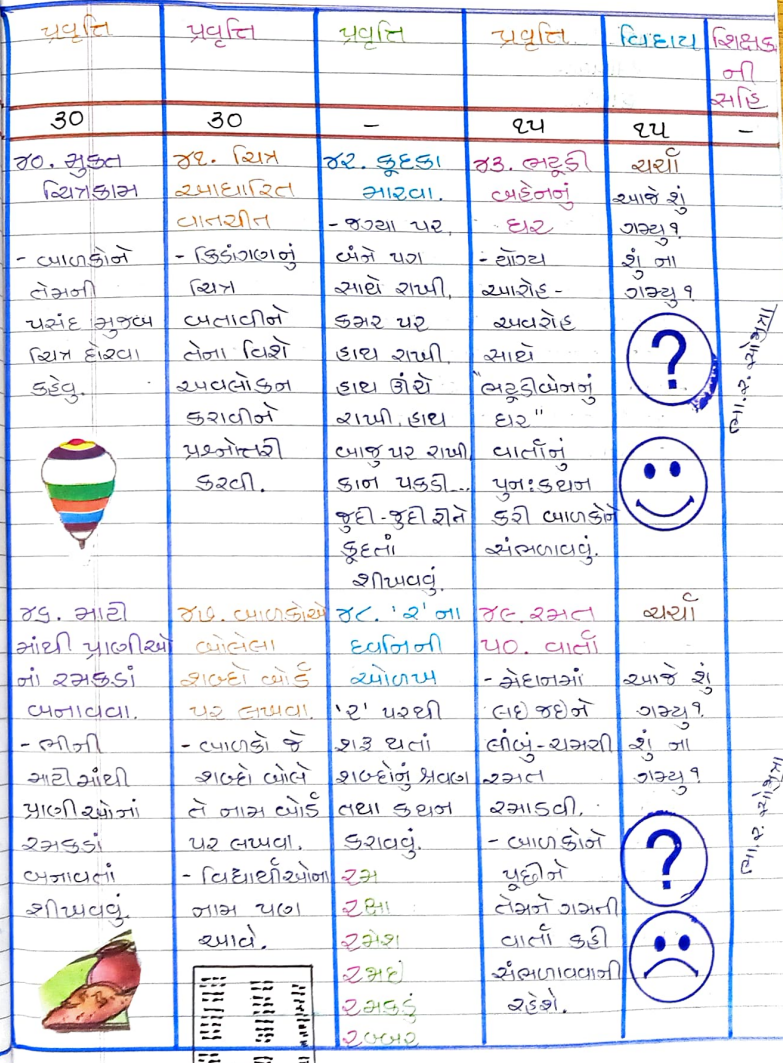 પ્રવૃત્તિ
પ્રવૃત્તિ
પ્રવૃત્તિ
પ્રવૃત્તિ
વિદાય
શિક્ષક
ની
સહિ
30
30
-
૧૫
૧૫
-
૪૦. મુક્ત
ચિત્રકામ
- બાળકોને
તેમની
પસંદ મુજબ
ચિત્ર દોરવા
કહેવુ.
૪૧. ચિત્ર
આધારિત
વાતચીત
- ક્રિડાંગણનું
ચિત્ર
બતાવીને
તેના વિશે
અવલોકન
કરાવીને
પ્રશ્નોત્તરી
કરવી.
૪૨. કૂદકા
મારવા.
- જગ્યા પર,
બંને પગ
સાથે રાખી,
કમર પર
હાથ રાખી,
હાથ ઊંચે
રાખી, હાથ
બાજુ પર રાખી
કાન પકડી...
જુદી-જુદી રીતે
કૂદતાં
શીખવવું.
૪૩. ભટૂડી
બહેનનું
ઘર
- યોગ્ય
આરોહ-
અવરોહ
સાથે
"ભટૂડીબેનનું
ઘર"
વાર્તાનું
પુનઃકથન
કરી બાળકોને
સંભળાવવું.
ચર્ચા
આજે શું
ગમ્યુ?
શું ના
ગમ્યુ?
?
૪૬. માટી
માંથી પ્રાણીઓ
નાં રમકડાં
બનાવવા.
- ભીની
માટીમાંથી
પ્રાણીઓનાં
રમકડાં
બનાવતાં
શીખવવું.
૪૭. બાળકોએ
બોલેલા
શબ્દો બોર્ડ
પર લખવા.
- બાળકો જે
શબ્દો બોલે
તે નામ બોર્ડ
પર લખવા.
- વિદ્યાર્થીઓના
નામ પણ
આવે.
૪૮. 'ર' ના
ધ્વનિની
ઓળખ
'ર' પરથી
શરૂ થતાં
શબ્દોનું શ્રવણ
તથા કથન
કરાવવું.
રમ
રક્ષા
રમેશ
રમઈ
રમકડું
રબ્બર
૪૯. રમત
૫૦. વાર્તા
- મેદાનમાં
લઇ જઇને
લીંબુ-ચમચી
રમત
રમાડવી.
- બાળકોને
પૂછીને
તેમને ગમતી
વાર્તા કહી
સંભળાવવાની
રહેશે.
ચર્ચા
આજે શું
ગમ્યુ?
શું ના
ગમ્યુ?
?